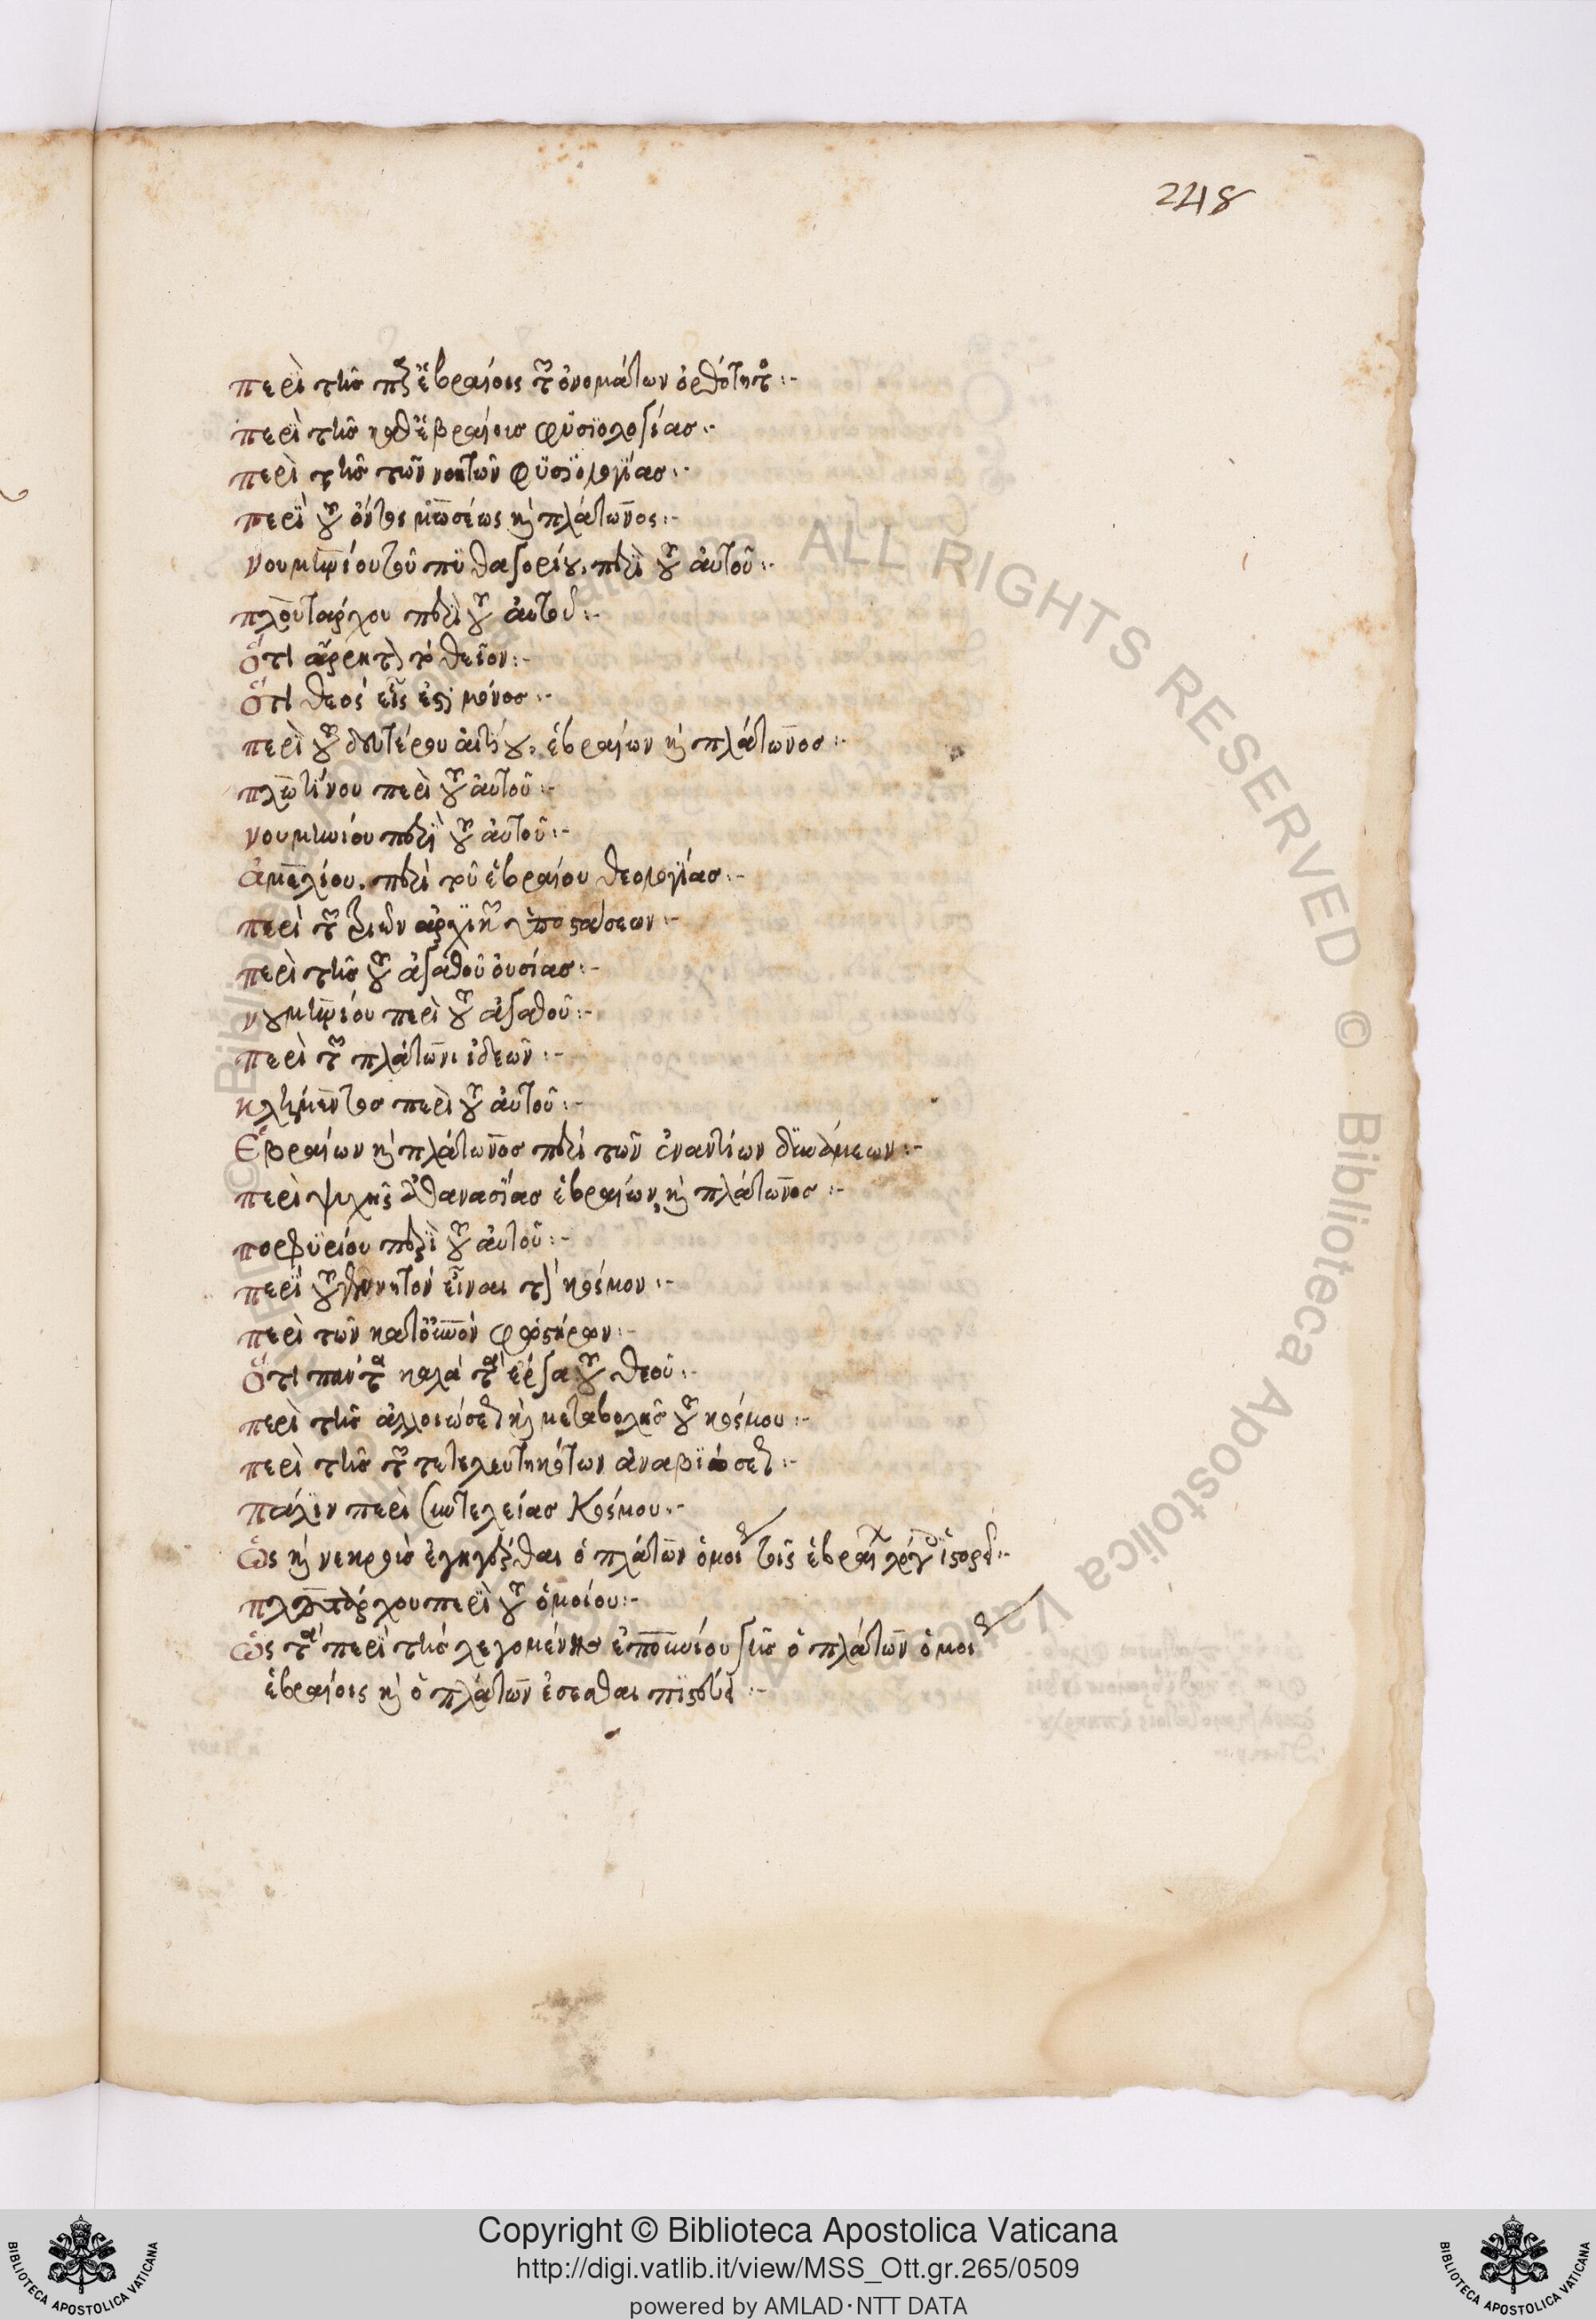 248
περὶ τῆς παρ' ἑβραίοις τῶν ὀνομάτων ὀρθότητος:-
περὶ τῆς καθ' ἑβραίοις φυσιολογίας:-
περὶ τῆς τῶν νοητῶν φυσιολογίας:-
περὶ τοῦ ὄντος μωσέως καὶ πλάτωνος:-
νουμηνίου τοῦ πυθαγορίου, περὶ τοῦ αὐτοῦ:-
πλουτάρχου περὶ τοῦ αὐτοῦ:-
Ὅτι ἄρρητον τὸ θεῖον:-
Ὅτι θεὸς εἷς ἐστι μόνος:-
περὶ τοῦ δευτέρου αἰτίου, ἑβραίων καὶ πλάτωνος:-
πλωτίνου περὶ τοῦ αὐτοῦ:-
νουμηνίου περὶ τοῦ αὐτοῦ:-
ἀμελίου, περὶ τοῦ ἑβραίου θεολογίας:-
περὶ τῶν τριῶν ἀρχικῶν ὑποστάσεων:-
περὶ τῆς τοῦ ἀγαθοῦ οὐσίας:-
νουμηνίου περὶ τοῦ ἀγαθοῦ:-
περὶ τῶν πλάτωνι ἰδεῶν:-
κλήμεντος περὶ τοῦ αὐτοῦ:-
Ἑβραίων καὶ πλάτωνος περὶ τῶν ἐναντίων δυνάμεων:-
περὶ ψυχῆς ἀθανασίας ἑβραίων, καὶ πλάτωνος:-
πορφυρίου περὶ τοῦ αὐτοῦ:-
περὶ τοῦ γεννητὸν εἶναι τὸν κόσμον:-
περὶ τῶν κατ' οὐρανὸν φωστήρων:-
Ὅτι πάντα καλὰ τὰ ἔργα τοῦ θεοῦ:-
περὶ τῆς ἀλλοιώσεως καὶ μεταβολῆς τοῦ κόσμου:-
περὶ τῆς τῶν τετελευτηκότων ἀναβιώσεως:-
πάλιν περὶ συντελείας κόσμου:-
Ὡς καὶ νεκροὺς ἐγηγέρθαι ὁ πλάτων ὁμοίως τοῖς ἑβραίων λόγοις ἱστορεῖ:-
πλουτάρχου περὶ τοῦ ὁμοίου:-
Ὡς τὰ περὶ τῆς λεγομένης ἐπουρανίου γῆς ὁ πλάτων ὁμοίως
ἑβραίοις καὶ ὁ πλάτων ἔσεσθαι πιστεύει:-
Copyright © Biblioteca Apostolica Vaticana
http://digi.vatlib.it/view/MSS_Ott.gr.265/0509
powered by AMLAD·NTT DATA